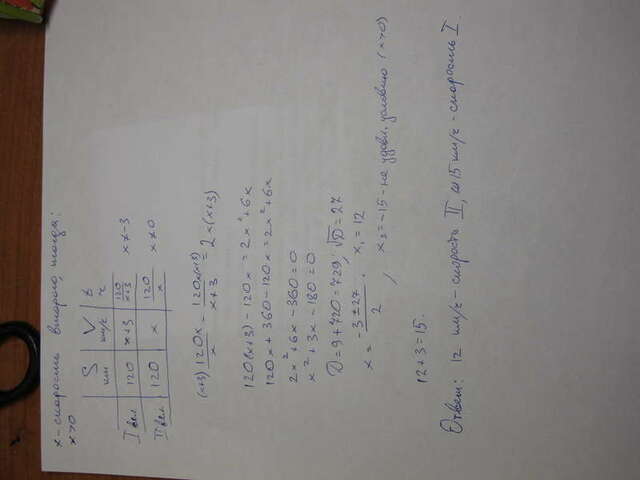 x - скорость второго, тогда:
x>0
S км V км/ч t ч
I вел 120 x+3 120/x+3 x≠-3
II вел 120 x 120/x x≠0
(x+3) 120x/x - 120x(x+3)/x+3 = 2x(x+3)
120(x+3) - 120x = 2x²+6x
120x + 360 - 120x = 2x²+6x
2x²+6x-360=0
x²+3x-180=0
D=9+720=729; √D=27
x = -3±27/2 , x₁=12
, x₂=-15 - не удовл. условию (x>0)
12+3=15.
Ответ: 12 км/ч - скорость II, 15 км/ч - скорость I.